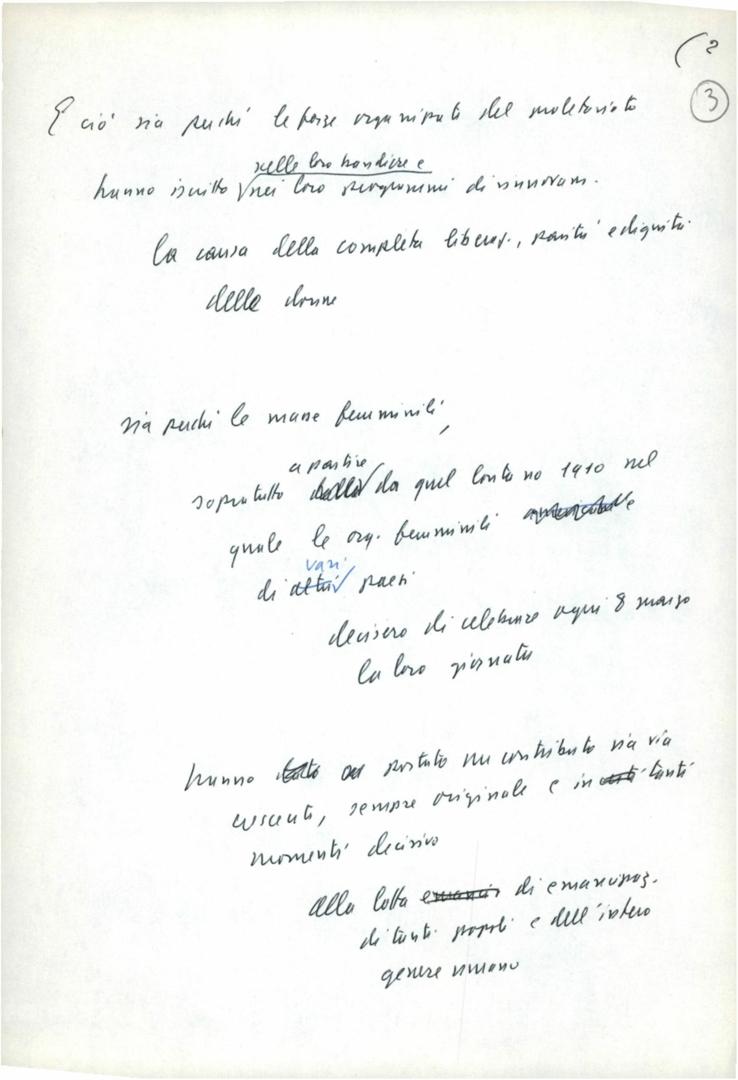 ( 2
3
E ciò sia perché le forze organizzate del proletariato
nelle loro bandiere e
hanno iscritto nei loro programmi di rinnovam.
la causa della completa liberaz., parità e dignità
delle donne
sia perché le masse femminili,
a partire
sopratutto dalla da quel lontano 1910 nel
quale le org. femminili
vari
di altri paesi
decisero di celebrare ogni 8 marzo
la loro giornata
hanno dato portato un contributo via via
crescente, sempre originale e in tanti
momenti decisivo
alla lotta emancip di emancipaz.
di tanti popoli e dell'intero
genere umano